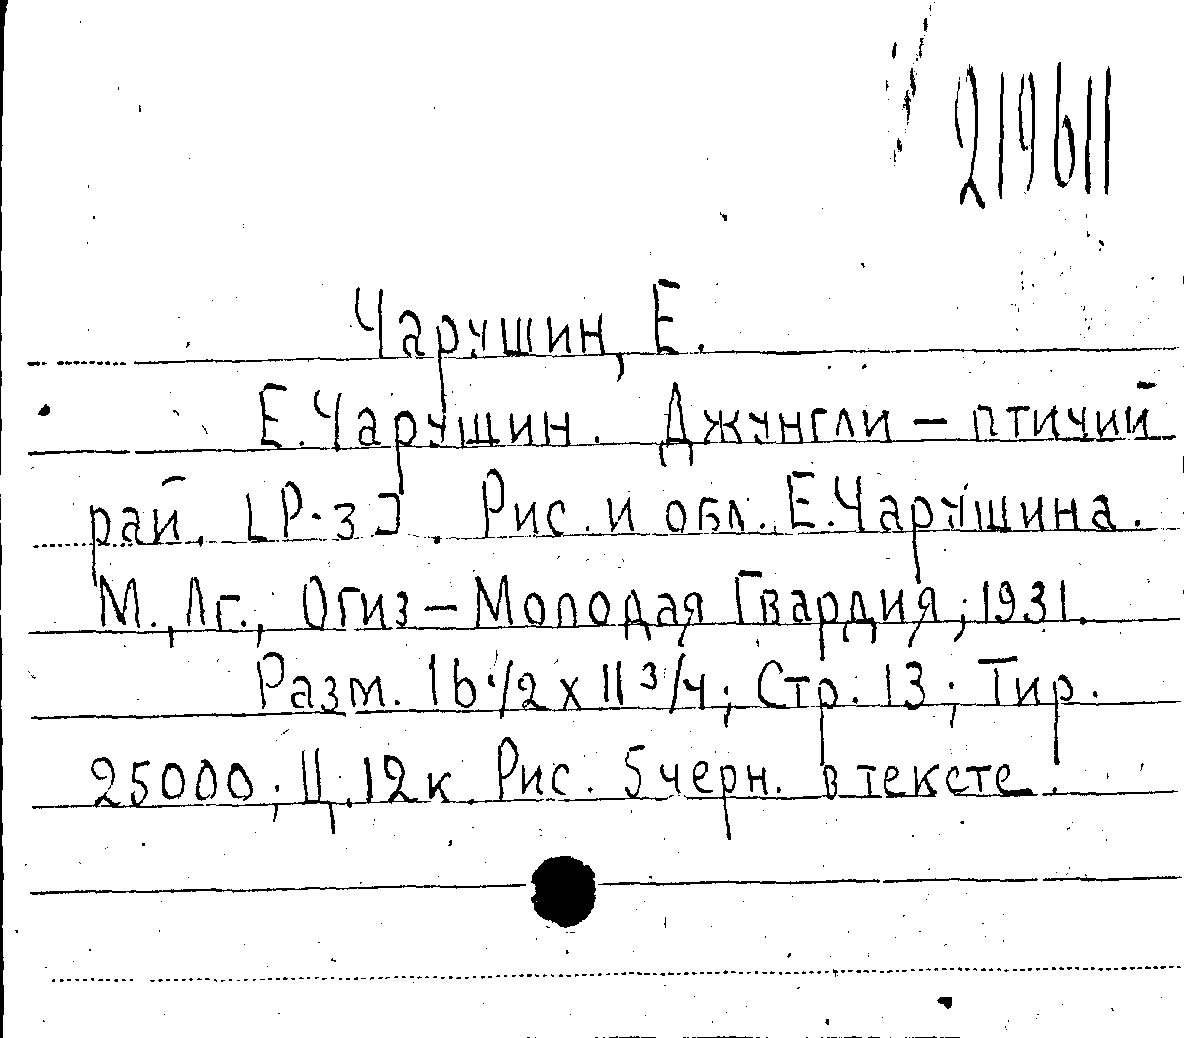 219611
Чарушин, Е.
Е. Чарушин. Джунгли — птичий
рай. [Р-з]. Рис. и обл. Е. Чарушина.
М., Лг., Огиз — Молодая Гвардия, 1931.
Разм. 16 1/2 x 11 3/4; Стр. 13; Тир.
25000; Ц. 12 к. Рис. 5 черн. в тексте.